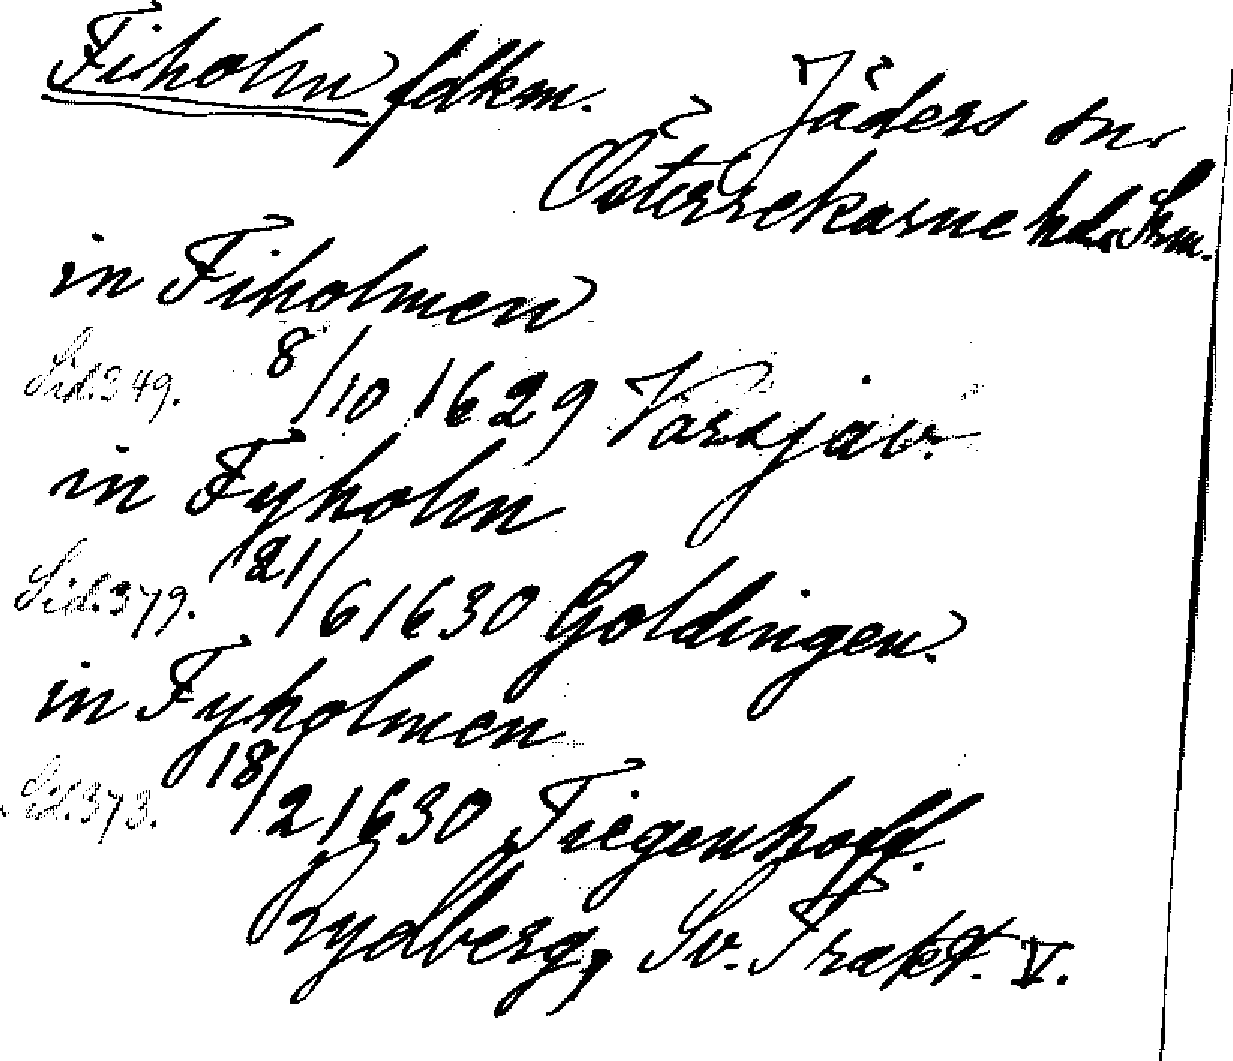 Fiholm fdkm. Jäders sn.
Österrekarne hd. Srm.
in Fiholmen
Sid. 349. 8/10 1629 Varsjav.
in Fyholm
Sid. 379. 21/6 1630 Goldingen.
in Fyholmen
Sid. 373. 18/2 1630 Tiegenhoff.
Rydberg, Sv. Trakt. V.